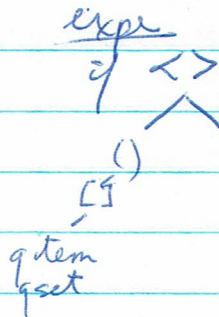 expr
if <>
()
[]
qitem
qset